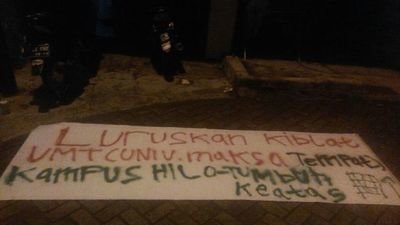 LURUSKAN KIBLAT
UMT CUNIV. maksa Tempat)
KAMPUS HILA-TUMBUH
KEATAS